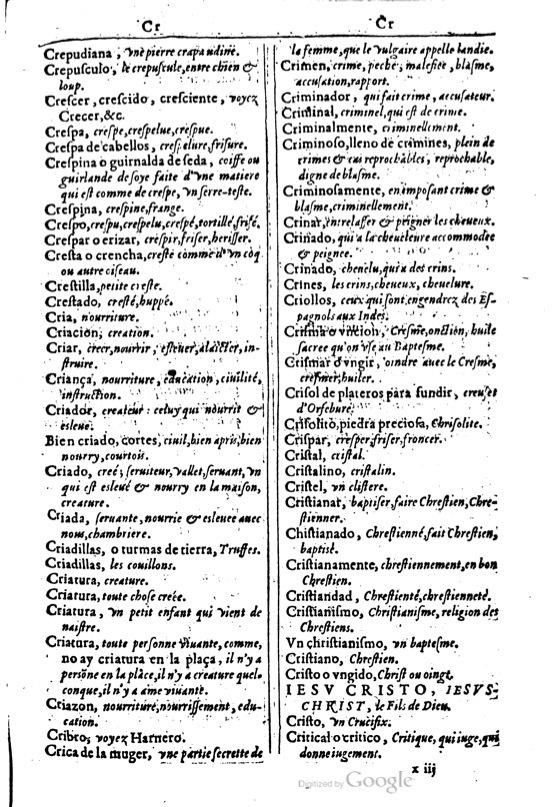 Cr
Crepudiana, vne pierre crapaudine.
Crepusculo, le crepuscule, entre chien &
loup.
Crescer, crescido, cresciente, voyez
Crecer, &c.
Crespa, crespe, crespelue, crespue.
Crespa de cabellos, crespelure, frisure.
Crespina o guirnalda de seda, coiffe ou
guirlande de soye faite d'vne matiere
qui est comme de crespe, vn serre-teste.
Crespina, crespine, frange.
Crespo, crespu, crespelu, crespé, tortillé, frisé.
Crespar o erizar, crespir, friser, herisser.
Cresta o crencha, creste comme d'vn coq
ou autre oiseau.
Crestilla, petite creste.
Crestado, cresté, huppé.
Cria, nourriture.
Criacion, creation.
Criar, creer, nourrir, esleuer, alaicter, in-
struire.
Criança, nourriture, education, ciuilité,
instruction.
Criador, createur: celuy qui nourrit &
esleue.
Bien criado, cortes, ciuil, bien apris, bien
nourry, courtois.
Criado, creé, seruiteur, vallet, seruant, vn
qui est esleué & nourry en la maison,
creature.
Criada, seruante, nourrie & esleuee auec
nous, chambriere.
Criadillas, o turmas de tierra, Truffes.
Criadillas, les couillons.
Criatura, creature.
Criatura, toute chose creée.
Criatura, vn petit enfant qui vient de
naistre.
Criatura, toute personne viuante, comme,
no ay criatura en la plaça, il n'y a
persone en la place, il n'y a creature quel-
conque, il n'y a ame viuante.
Criazon, nourriture, nourrissement, edu-
cation.
Cribro, voyez Harnero.
Crica de la muger, vne partie secrette de
Cr
la femme, que le vulgaire appelle landie.
Crimen, crime, peché, malefice, blasme,
accusation, rapport.
Criminador, qui fait crime, accusateur.
Criminal, criminel, qui est de crime.
Criminalmente, criminellement.
Criminoso, lleno de crimines, plein de
crimes & cas reprochables, reprochable,
digne de blasme.
Criminosamente, en imposant crime &
blasme, criminellement.
Crinar, entrelasser & peigner les cheueux.
Crinado, qui a la cheueleure accommodee
& peignee.
Crinado, cheuelu, qui a des crins.
Crines, les crins, cheueux, cheuelure.
Criollos, ceux qui sont engendrez des Es-
pagnols aux Indes.
Crisma o vncion, Cresme, onction, huile
sacree qu'on vse au Baptesme.
Crismar o vngir, oindre auec le Cresme,
cresmer, huiler.
Crisol de plateros para fundir, creuset
d'Orfebure.
Crisolito, piedra preciosa, Chrisolite.
Crispar, cresper, friser, froncer.
Cristal, cristal.
Cristalino, cristalin.
Cristel, vn clistere.
Cristianar, baptiser, faire Chrestien, Chre-
stienner.
Chistianado, Chrestienné, fait Chrestien,
baptisé.
Cristianamente, chrestiennement, en bon
Chrestien.
Cristiandad, Chrestienté, chrestienneté.
Cristianismo, Christianisme, religion des
Chrestiens.
Vn christianismo, vn baptesme.
Cristiano, Chrestien.
Cristo o vngido, Christ ou oingt.
IESV CRISTO, IESVS-
CHRIST, le Fils de Dieu.
Cristo, vn Crucifix.
Critical o critico, Critique, qui iuge, qui
donne iugement.
x iij
Digitized by Google